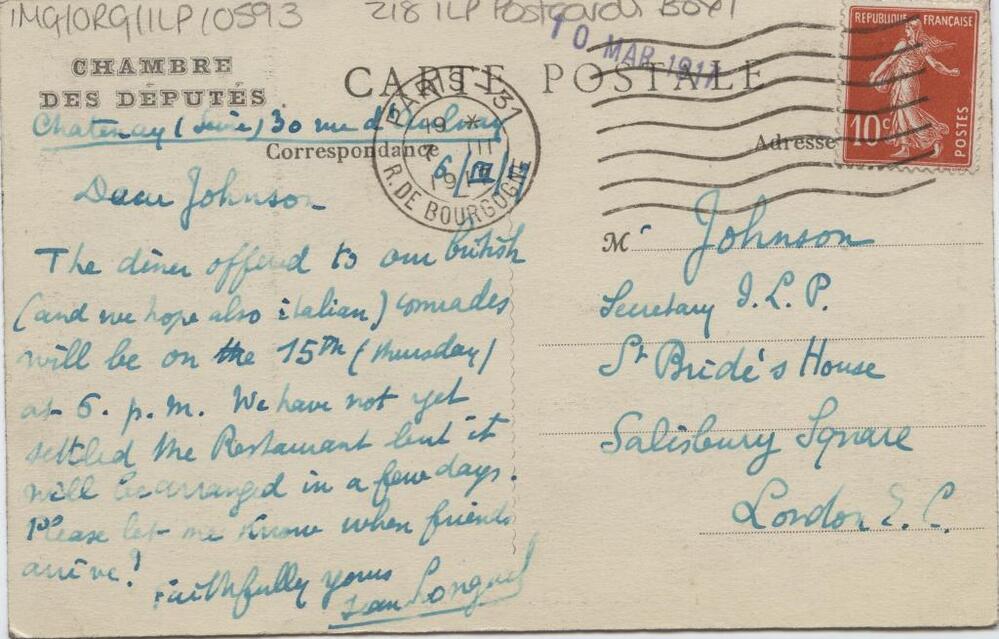 IMG/ORG/ILP/0593
218 ILP Postcards Box 1
10 MAR 1917
CHAMBRE
DES DÉPUTÉS
CARTE POSTALE
Chatenay (Seine) 30 rue d'
Correspondance
6/III/
PARIS VII
R. DE BOURGOGNE
Adresse
RÉPUBLIQUE FRANÇAISE
10c
POSTES
Dear Johnson
The diner offered to our british
(and we hope also italian) comrades
will be on the 15th (thursday)
at 6. p.m. We have not yet
settled the Restaurant but it
will be arranged in a few days.
Please let me know when friends
arrive!
Faithfully yours
Jean Longuet
M r Johnson
Secretary I.L.P.
St Bride's House
Salisbury Square
London E.C.